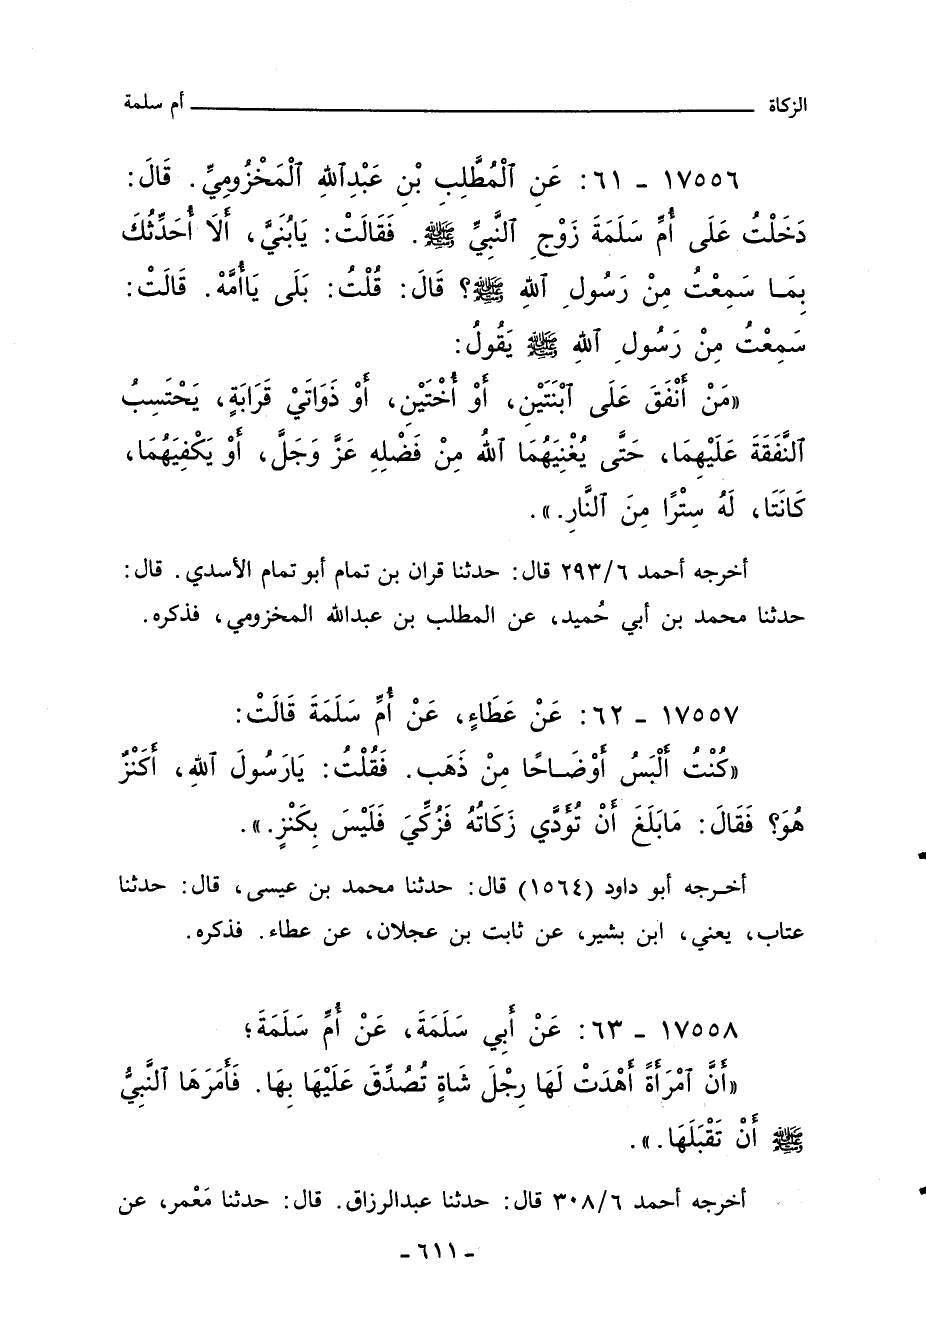 الزكاة ــــــــ أم سلمة
١٧٥٥٦ - ٦١: عَنِ ٱلْمُطَّلِبِ بْنِ عَبْدِٱللهِ ٱلْمَخْزُومِيِّ. قَالَ:
دَخَلْتُ عَلَى أُمِّ سَلَمَةَ زَوْجِ ٱلنَّبِيِّ ﷺ. فَقَالَتْ: يَابُنَيَّ، أَلَا أُحَدِّثُكَ
بِمَا سَمِعْتُ مِنْ رَسُولِ ٱللهِ ﷺ؟ قَالَ: قُلْتُ: بَلَى يَاأُمَّهْ. قَالَتْ:
سَمِعْتُ مِنْ رَسُولِ ٱللهِ ﷺ يَقُولُ:
«مَنْ أَنْفَقَ عَلَى ٱبْنَتَيْنِ، أَوْ أُخْتَيْنِ، أَوْ ذَوَاتَيْ قَرَابَةٍ، يَحْتَسِبُ
ٱلنَّفَقَةَ عَلَيْهِمَا، حَتَّى يُغْنِيَهُمَا ٱللهُ مِنْ فَضْلِهِ عَزَّ وَجَلَّ، أَوْ يَكْفِيَهُمَا،
كَانَتَا، لَهُ سِتْرًا مِنَ ٱلنَّارِ.».
أخرجه أحمد ٢٩٣/٦ قال: حدثنا قران بن تمام أبو تمام الأسدي. قال:
حدثنا محمد بن أبي حُميد، عن المطلب بن عبدالله المخزومي، فذكره.
١٧٥٥٧ - ٦٢: عَنْ عَطَاءٍ، عَنْ أُمِّ سَلَمَةَ قَالَتْ:
«كُنْتُ أَلْبَسُ أَوْضَاحًا مِنْ ذَهَب. فَقُلْتُ: يَارَسُولَ ٱللهِ، أَكَنْزٌ
هُوَ؟ فَقَالَ: مَابَلَغَ أَنْ تُؤَدَّي زَكَاتُهُ فَزُكِّيَ فَلَيْسَ بِكَنْزٍ.».
أخرجه أبو داود (١٥٦٤) قال: حدثنا محمد بن عيسى، قال: حدثنا
عتاب، يعني، ابن بشير، عن ثابت بن عجلان، عن عطاء. فذكره.
١٧٥٥٨ - ٦٣: عَنْ أَبِي سَلَمَةَ، عَنْ أُمِّ سَلَمَةَ؛
«أَنَّ ٱمْرَأَةً أَهْدَتْ لَهَا رِجْلَ شَاةٍ تُصُدِّقَ عَلَيْهَا بِهَا. فَأَمَرَهَا ٱلنَّبِيُّ
ﷺ أَنْ تَقْبَلَهَا.».
أخرجه أحمد ٣٠٨/٦ قال: حدثنا عبدالرزاق. قال: حدثنا مَعْمر، عن
- ٦١١ -